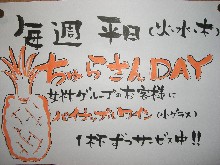 毎週 平日(火・水・木)
ちゅらさんDAY
女性グループのお客様に
パイナップルワイン(小グラス)
1杯ずつサービス中!!